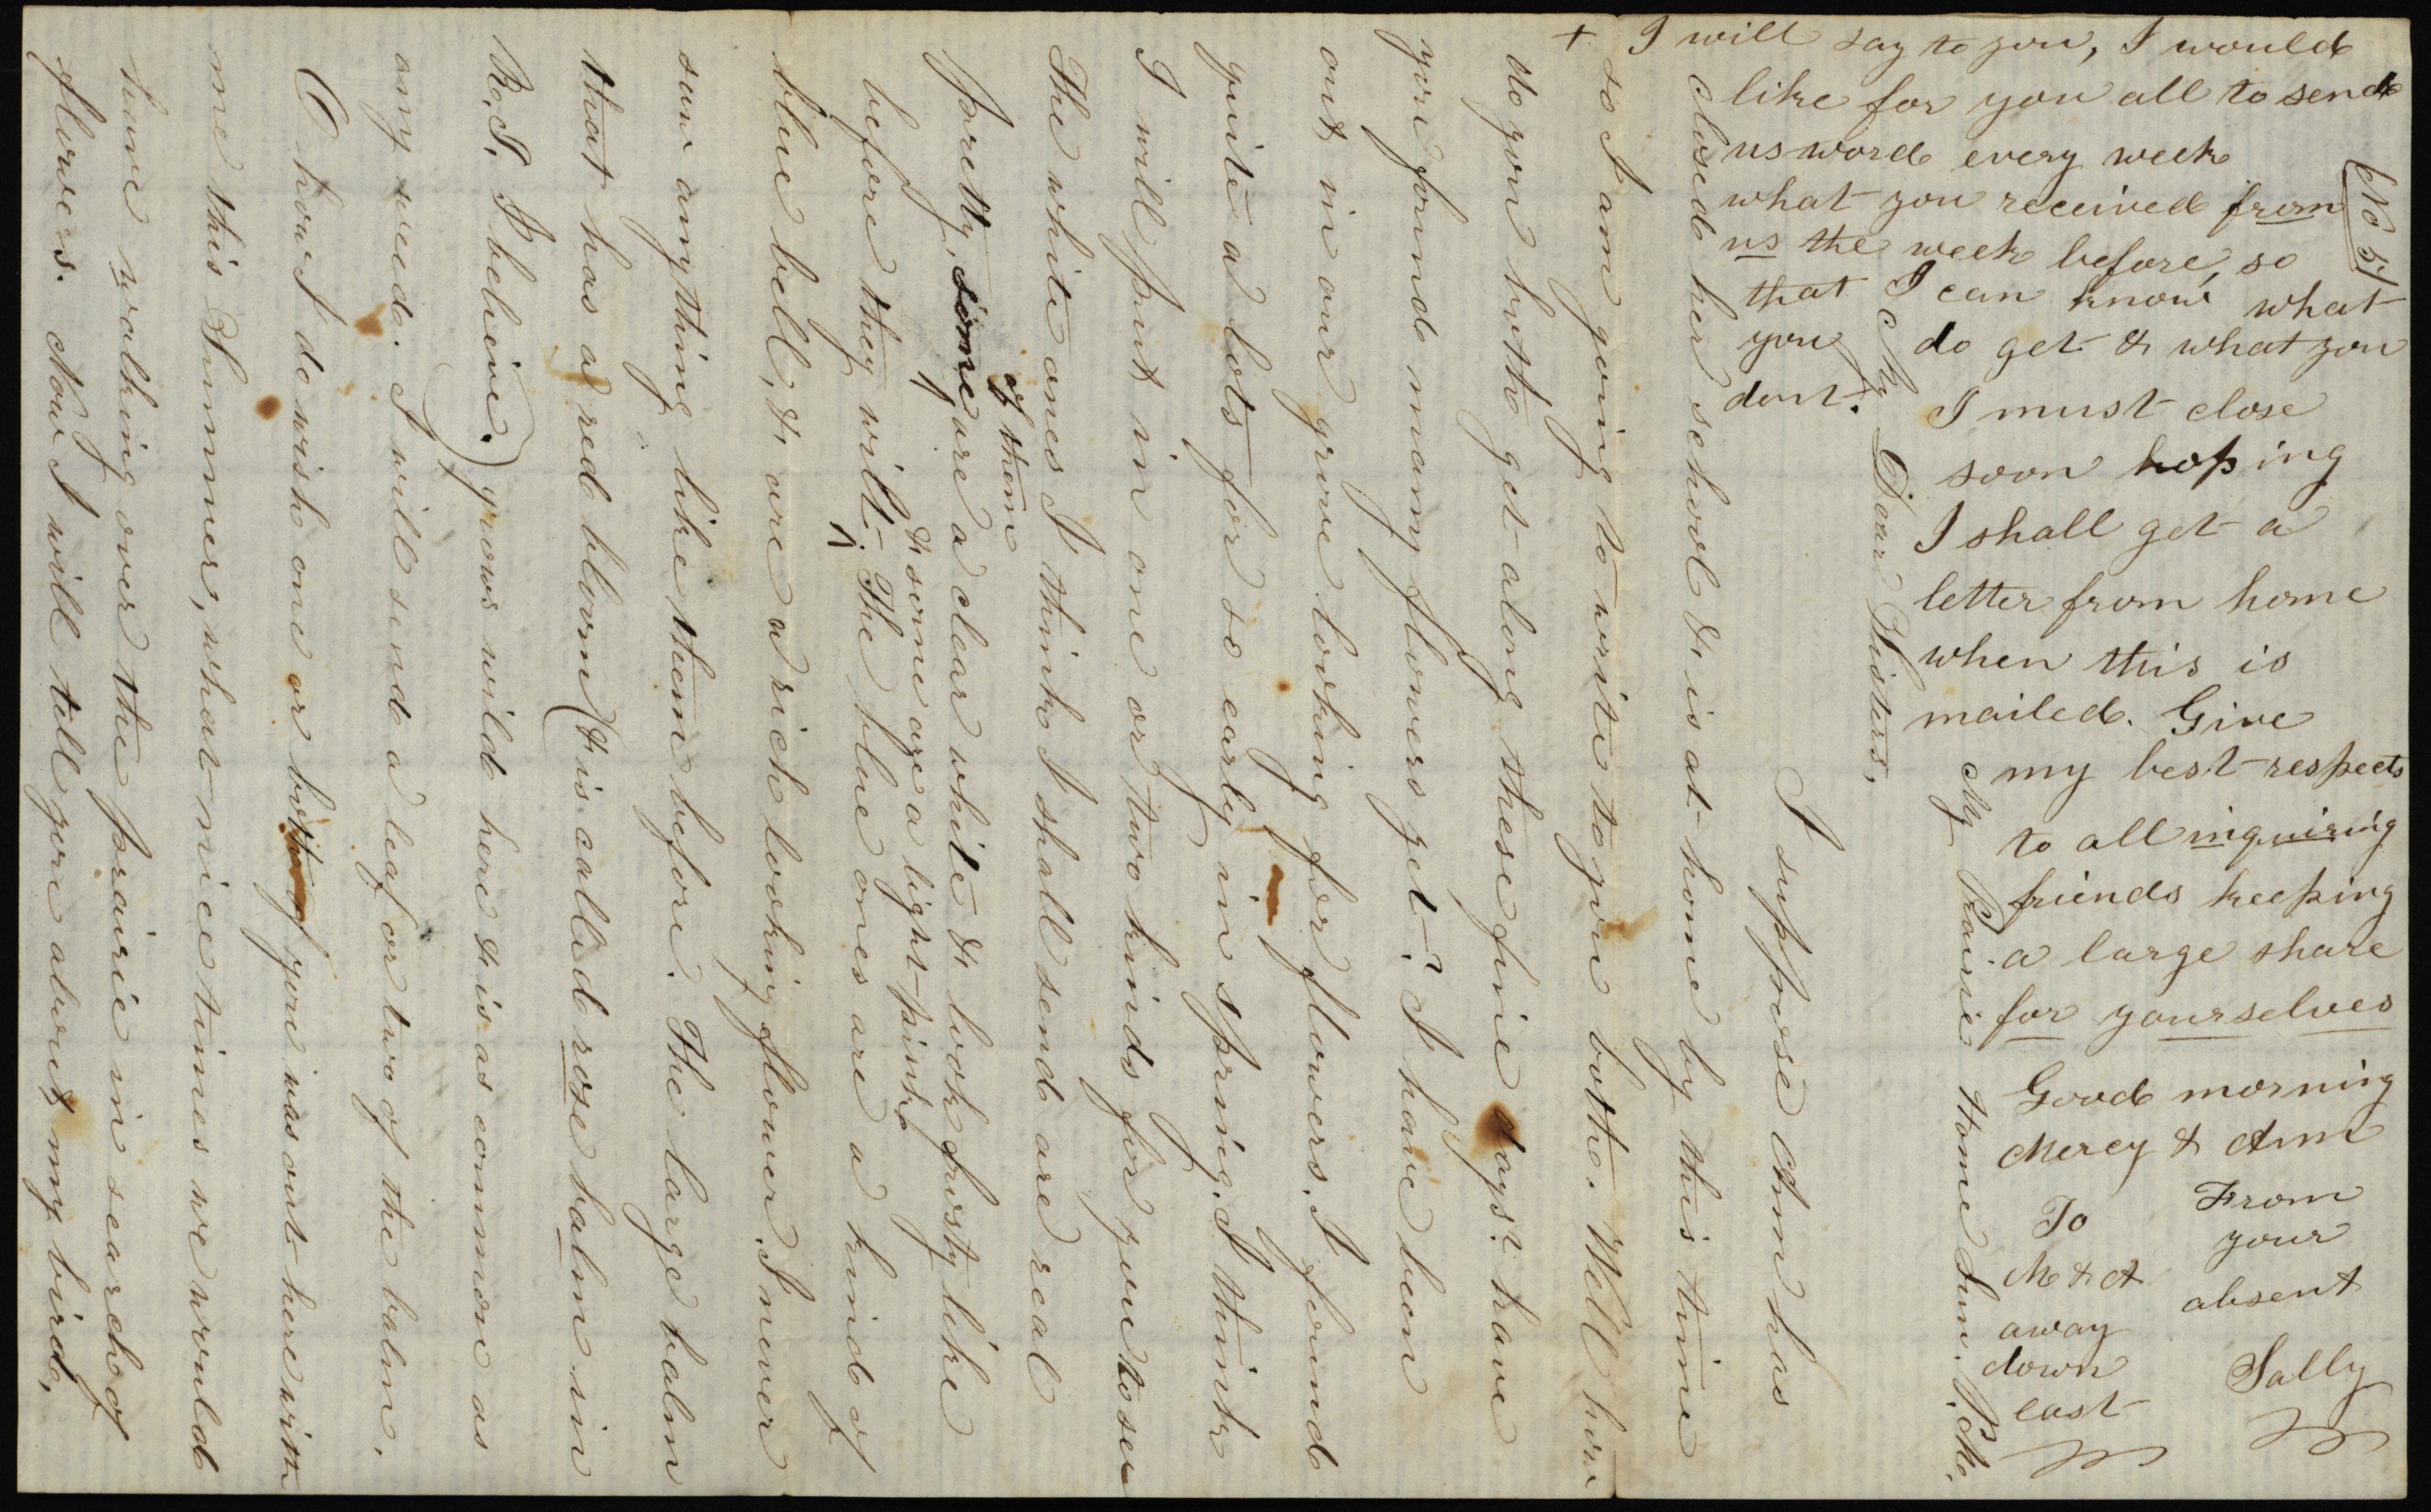 No 5
My Prairie Home Sun. P.M.
My Dear Sisters,
I suppose Ann has
closed her school & is at home by this time
so I am going to write to you both. Well how
do you both get along these fine days? have
you found many flowers yet? I have been
out in our grove looking for flowers. I found
quite a lots for so early in spring. I think
I will put in one or two kinds for you to see
The white ones I think I shall send are real
of them
pretty, some are a clear white & look frosty like
& some are a light pink
before they wilt. The blue ones are a kind of
blue bell, & are a rich looking flower. I never
saw anything like them before. The large balm
that has a red bloom (& is called rose balm in
R.I. I believe.) grows wild here & is as common as
any weed. I will send a leaf or two of the balm.
O how I do wish one or both of you was out here with
me this Summer, what nice times we would
have walking over the prairie in search of
flowers. Now I will tell you about my bird,
+ I will say to you, I would
like for you all to send
us word every week
what you received from
us the week before, so
that I can know what
you do get & what you
dont.
I must close
soon hoping
I shall get a
letter from home
when this is
mailed. Give
my best respects
to all inquiring
friends keeping
a large share
for yourselves
Good morning
Mercy & Ann
From
your
absent
Sally
To
M & A
away
down
east